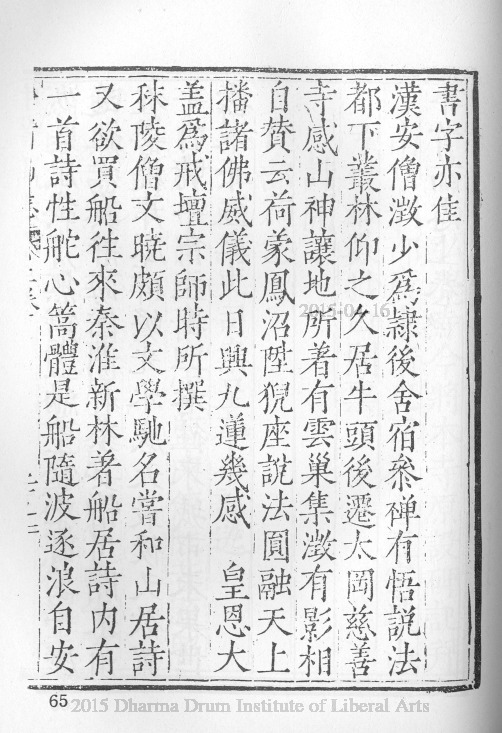 書字亦佳
漢安僧澂少爲隷後舍宿叅禅有悟説法
都下叢林仰之久居牛頭後遷太岡慈善
寺感山神讓地所著有雲巢集澂有影相
自賛云荷蒙鳳沼陞猊座說法圓融天上
播諸佛威儀此日興九蓮幾感　皇恩大
盖爲戒壇宗師時所撰
秣陵僧文曉頗以文學馳名嘗和山居詩
又欲買船往來秦淮新林著船居詩内有
一首詩性舵心篙體是船隨波逐浪自安
65
2015 Dharma Drum Institute of Liberal Arts